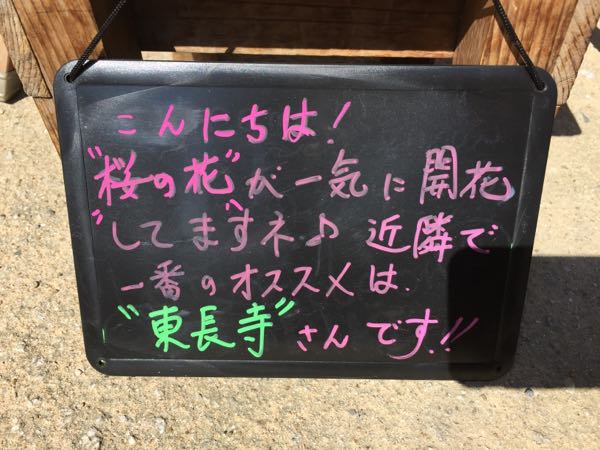 こんにちは!
"桜の花"が一気に開花
してますネ♪ 近隣で
一番のオススメは、
"東長寺"さんです!!